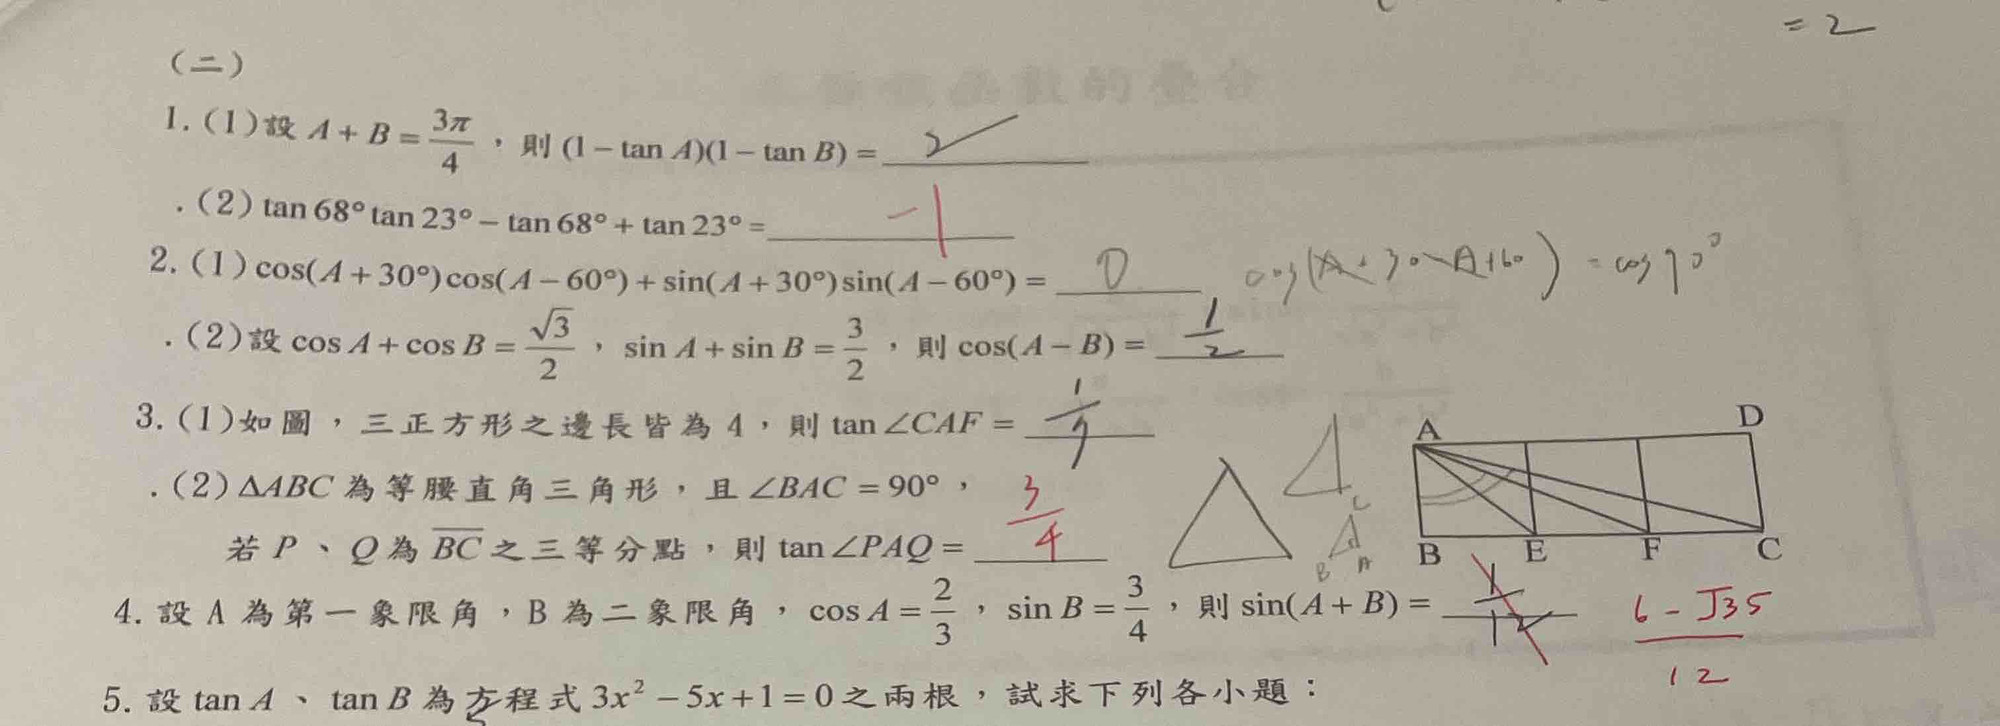 = 2
(二)
1. (1)設 A + B = 3π/4 , 則 (1 − tan A)(1 − tan B) = 2
. (2) tan 68° tan 23° − tan 68° + tan 23° = −1
2. (1) cos(A + 30°)cos(A − 60°) + sin(A + 30°)sin(A − 60°) = 0 cos(A+30−A+60) = cos 90°
. (2)設 cos A + cos B = √3/2 , sin A + sin B = 3/2 , 則 cos(A − B) = 1/2
3. (1)如圖,三正方形之邊長皆為 4,則 tan ∠CAF = 1/7
A D
. (2) ΔABC 為等腰直角三角形,且 ∠BAC = 90°,
若 P、Q 為 BC 之三等分點,則 tan ∠PAQ = 3/4
C
B A
B E F C
4. 設 A 為第一象限角,B 為二象限角,cos A = 2/3 , sin B = 3/4 , 則 sin(A + B) = 1/12 6 − √35/12
5. 設 tan A、tan B 為方程式 3x² − 5x + 1 = 0 之兩根,試求下列各小題: